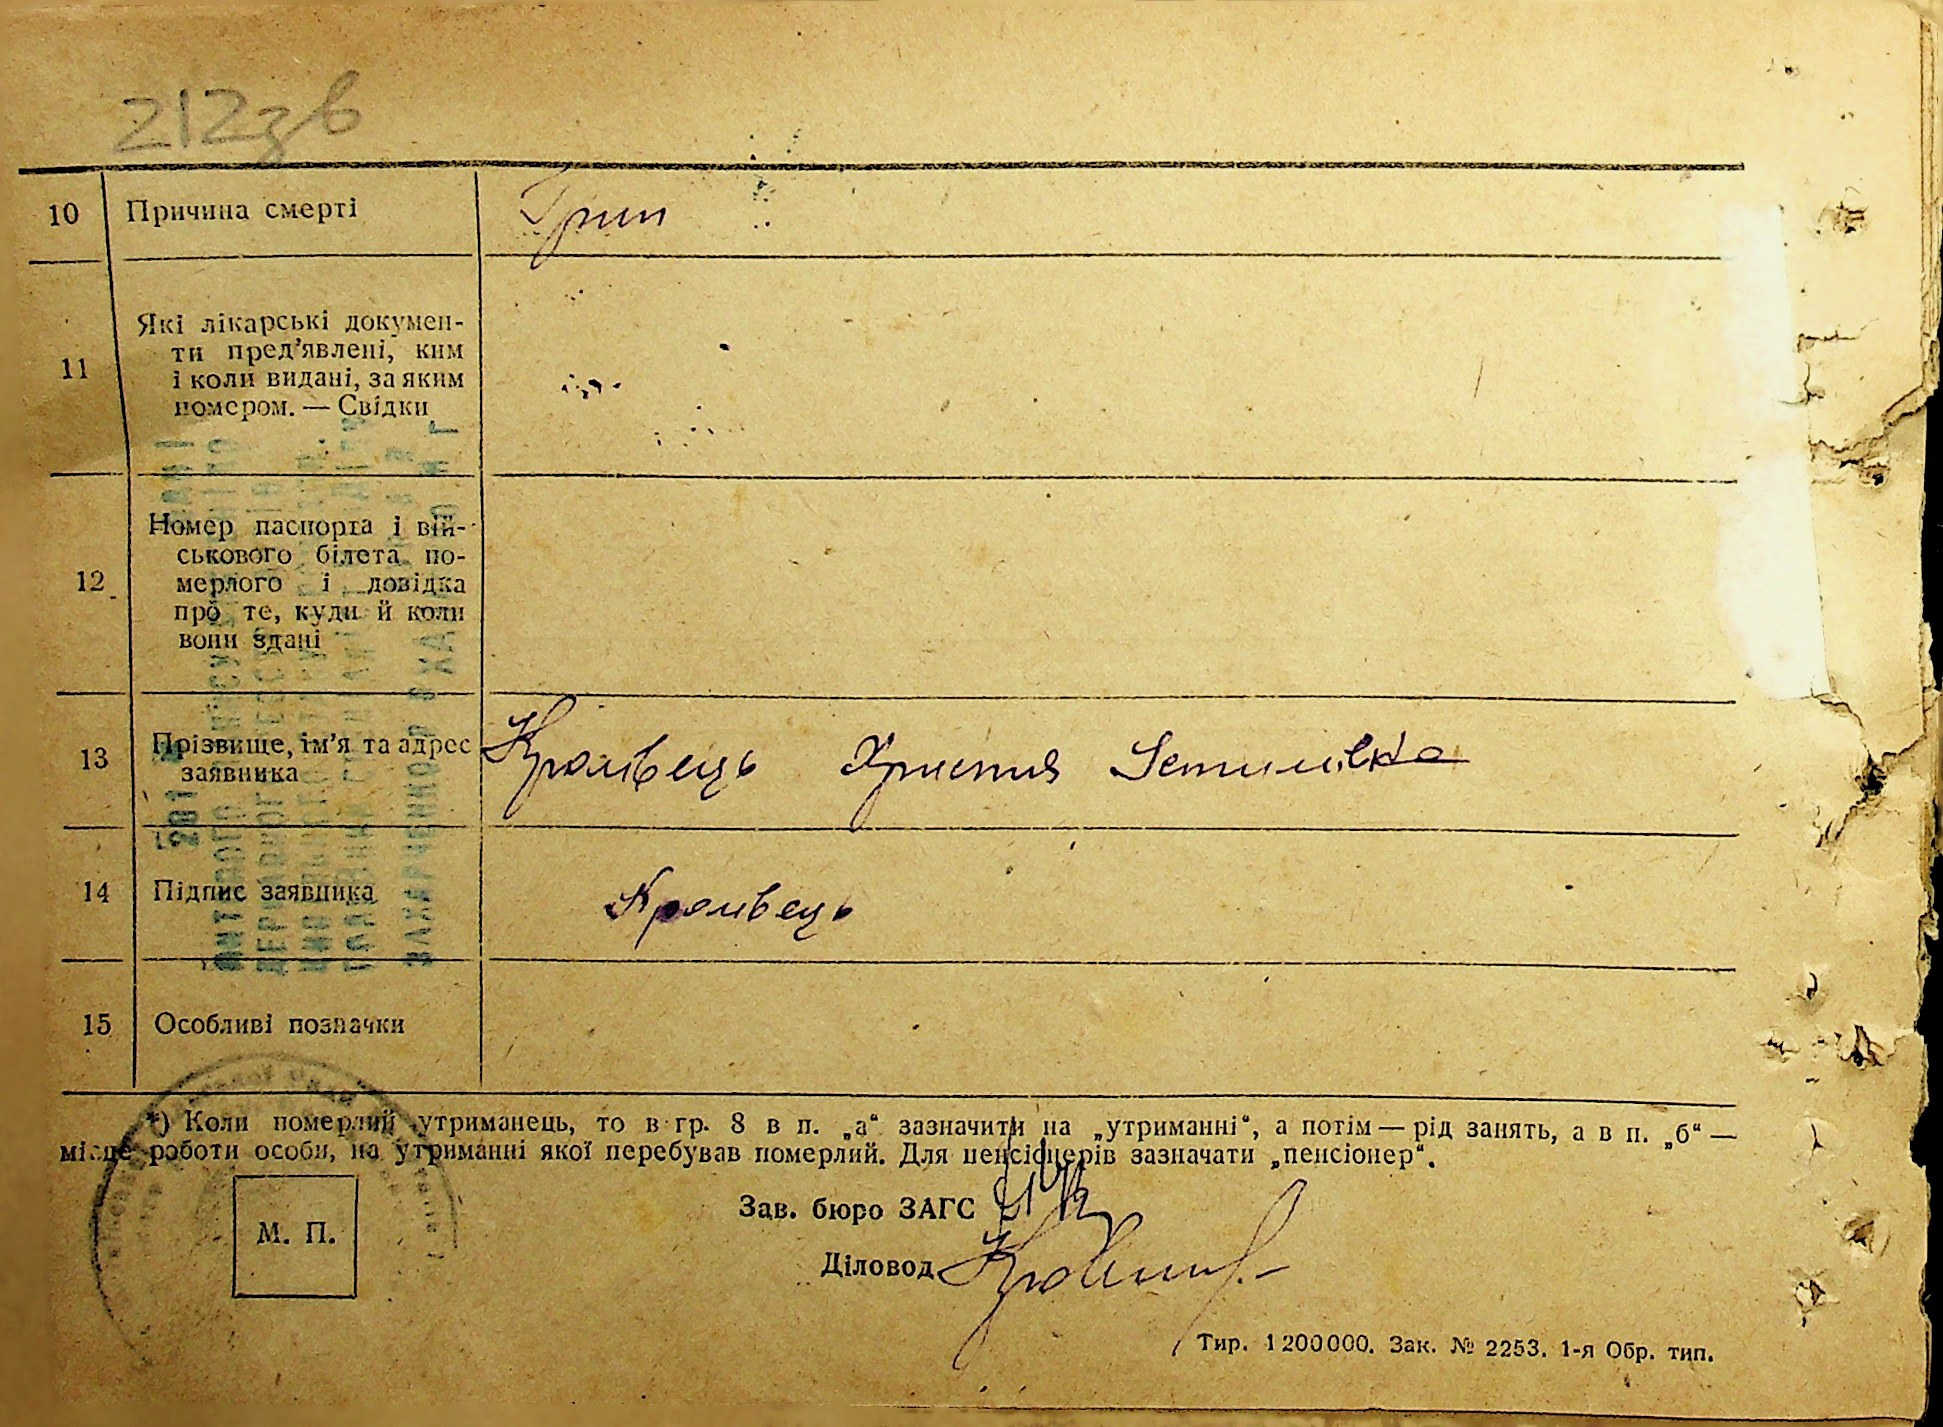 212зв
10 Причина смерті Грип
11 Які лікарські докумен-
ти пред’явлені, ким
і коли видані, за яким
номером. — Свідки
12 Номер паспорта і вій-
ськового білета по-
мерлого і довідка
про те, куди й коли
вони здані
13 Прізвище, ім’я та адрес
заявника Кролівець Христия Устимівка
14 Підпис заявника Кролівець
15 Особливі позначки
*) Коли померлий утриманець, то в гр. 8 в п. „а“ зазначити на „утриманні“, а потім — рід занять, а в п. „б“ —
місце роботи особи, на утриманні якої перебував померлий. Для пенсіонерів зазначати „пенсіонер“.
М. П.
Зав. бюро ЗАГС
Діловод
Тир. 1200000. Зак. № 2253. 1-я Обр. тип.